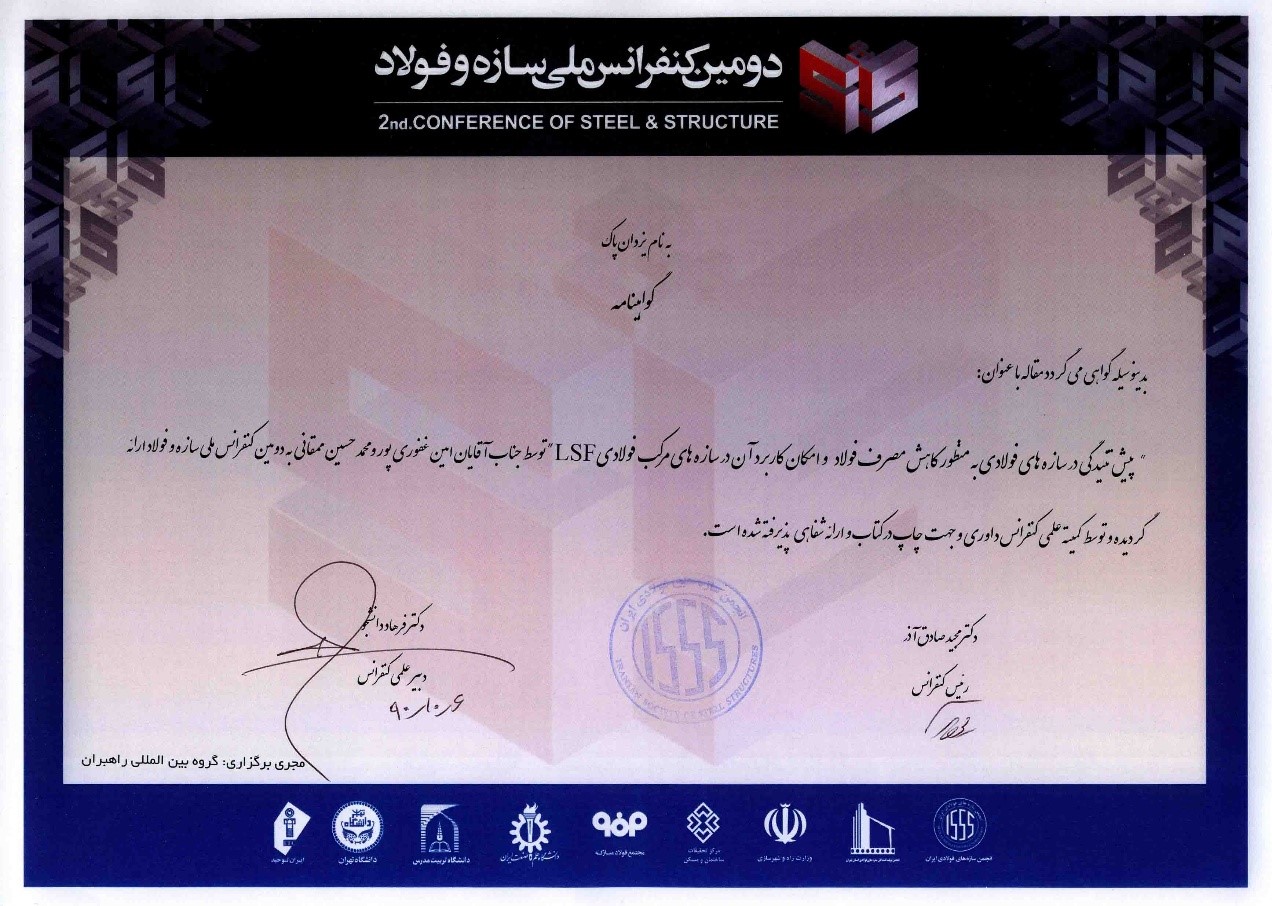 دومین کنفرانس ملی سازه و فولاد
2nd.CONFERENCE OF STEEL & STRUCTURE
به نام یزدان پاک
گواهینامه
بدینوسیله گواهی می گردد مقاله با عنوان:
" پیش تنیدگی در سازه های فولادی به منظور کاهش مصرف فولاد و امکان کاربرد آن در سازه های مرکب فولادی LSF" توسط جناب آقایان امین غفوری پور و محمد حسین ممقانی به دومین کنفرانس ملی سازه و فولاد ارائه
گردیده و توسط کمیته علمی کنفرانس داوری و جهت چاپ در کتاب و ارائه شفاهی پذیرفته شده است.
دکتر مجید صادق آذر
رئیس کنفرانس
دکتر فرهاد دانشجو
دبیر علمی کنفرانس
۹۰،۱۰،۶
انجمن سازه های فولادی ایران
ISSS
IRANIAN SOCIETY OF STEEL STRUCTURES
مجری برگزاری: گروه بین المللی راهبران
ISSS
انجمن سازه‌های فولادی ایران
وزارت راه و شهرسازی
مرکز تحقیقات
ساختمان و مسکن
مجتمع فولاد مبارکه
دانشگاه علم و صنعت ایران
دانشگاه تربیت مدرس
دانشگاه تهران